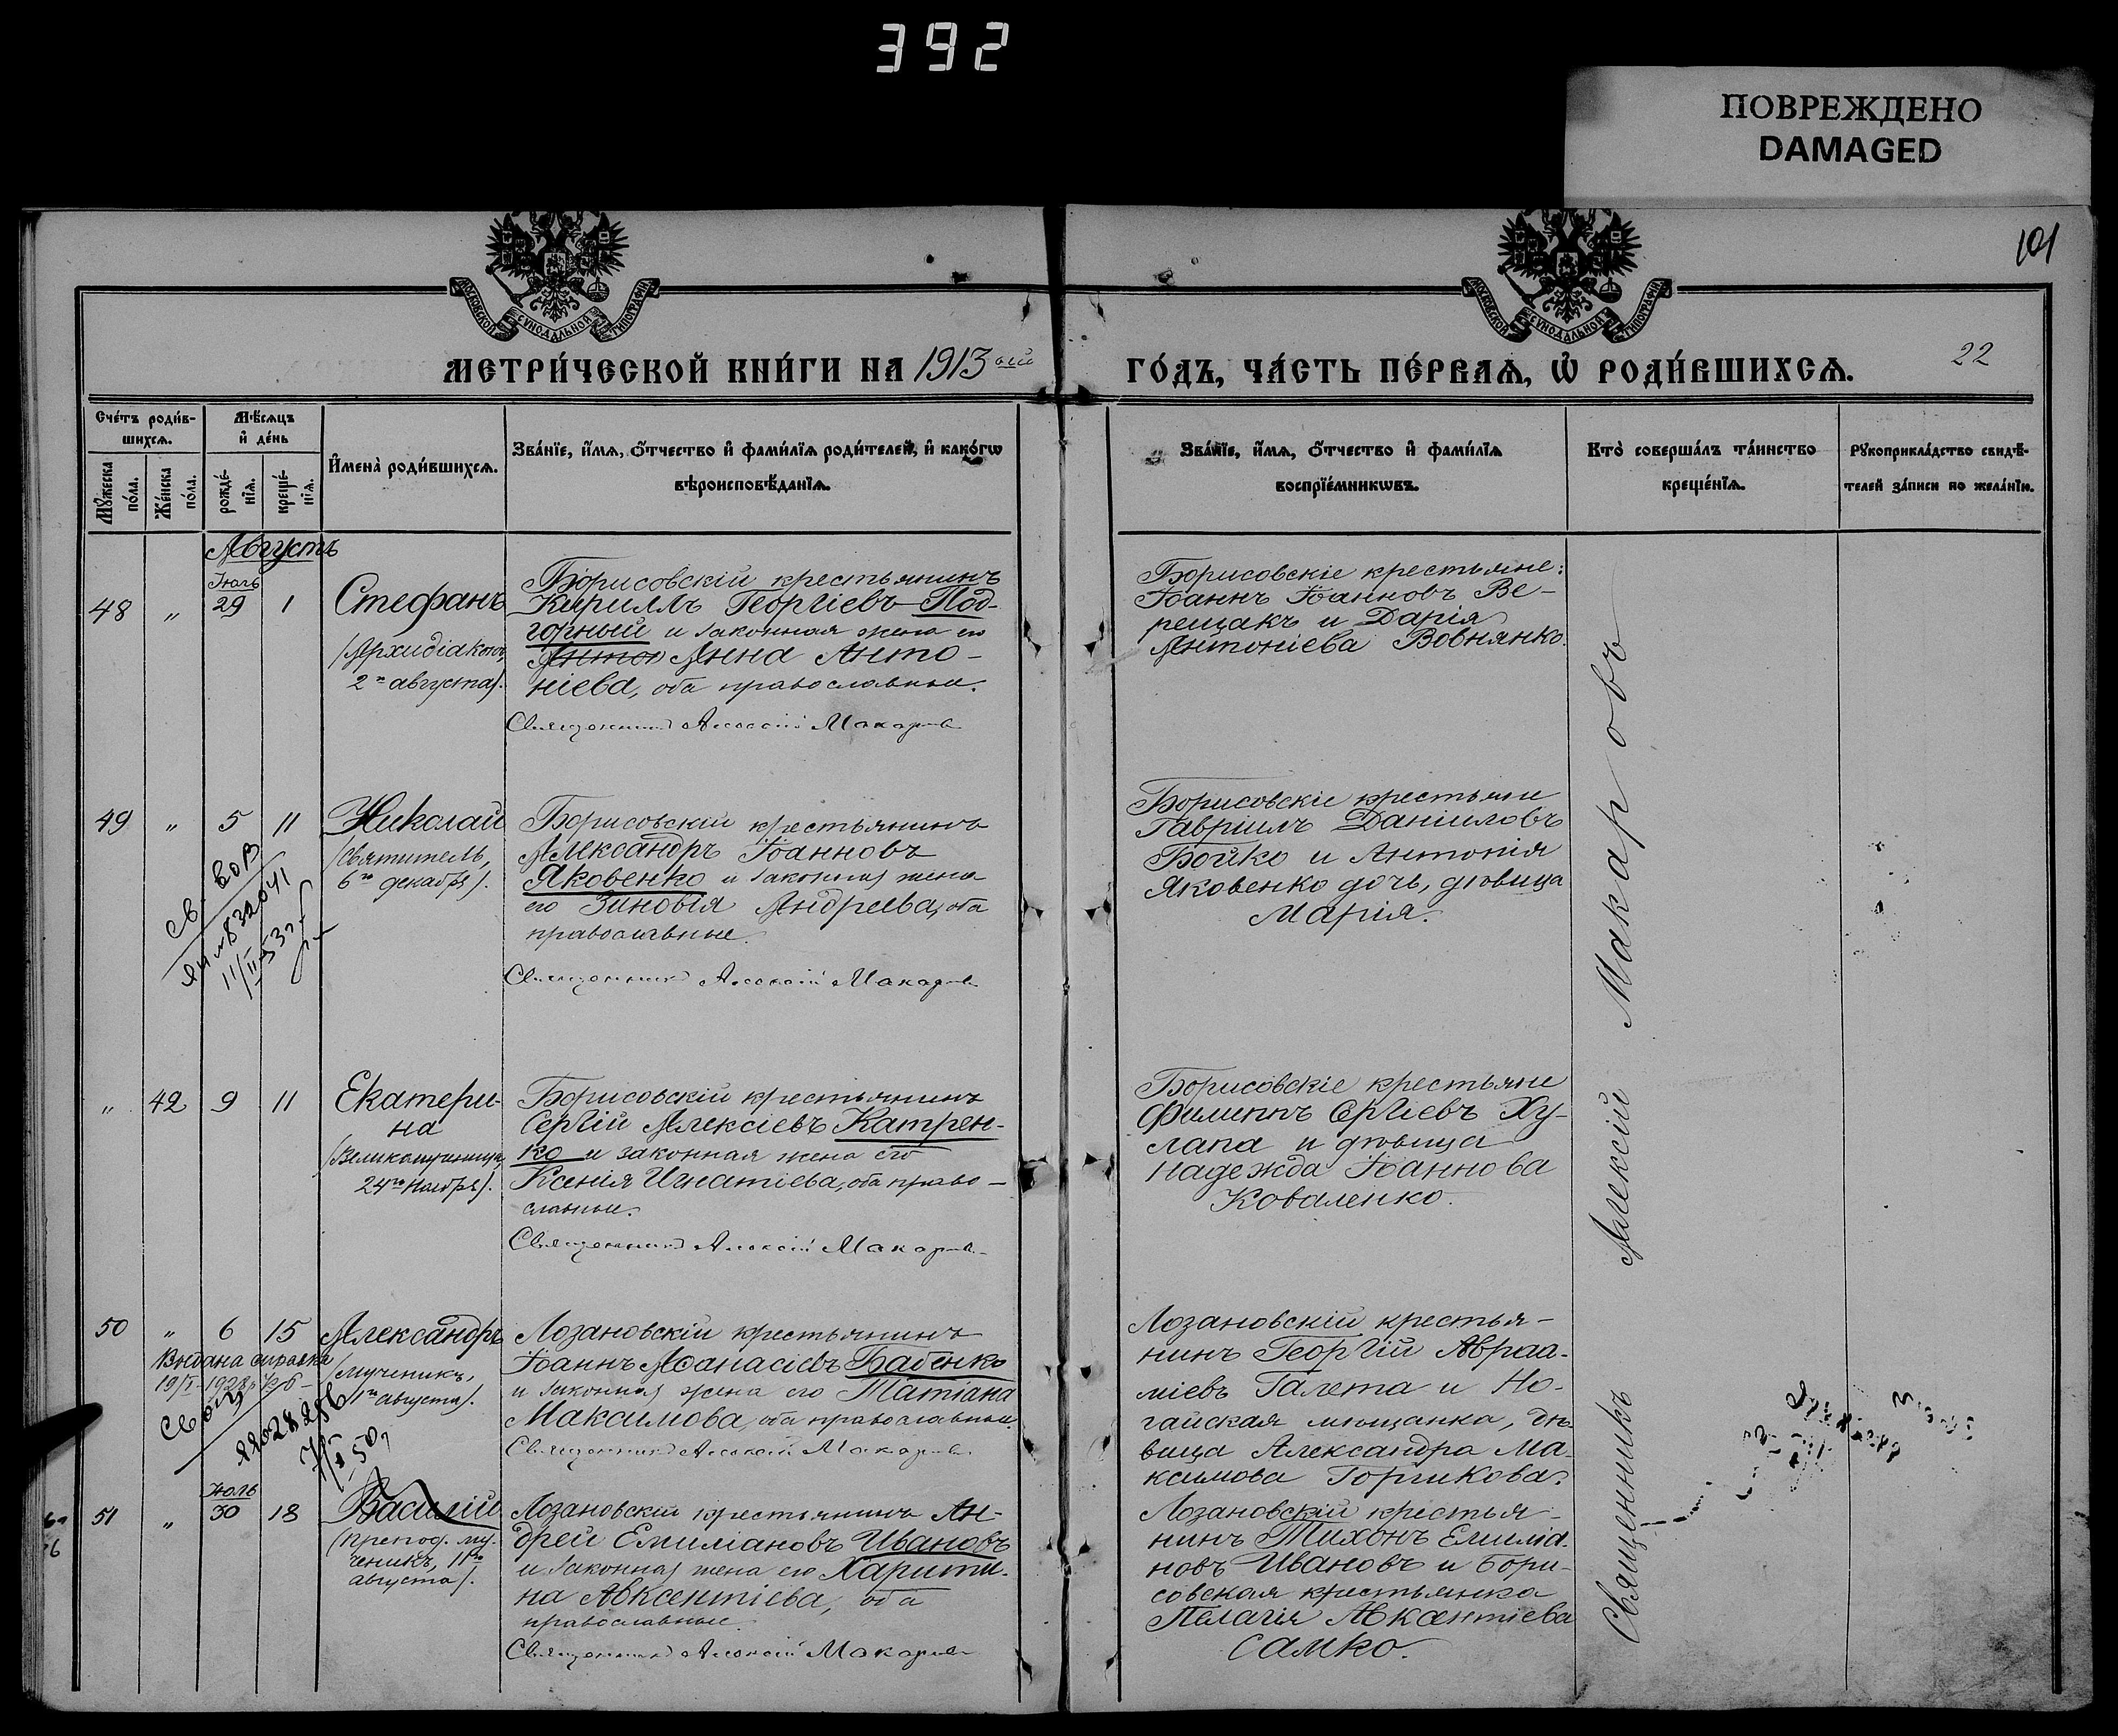 392
ПОВРЕЖДЕНО
DAMAGED
101
МОСКОВСКОЙ СѴНОДАЛЬНОЙ ТИПОГРАФІИ
МОСКОВСКОЙ СѴНОДАЛЬНОЙ ТИПОГРАФІИ
МЕТРИ́ЧЕСКОЙ КНИ́ГИ НА 1913 ый
ГО́ДЪ, ЧА́СТЬ ПЕ́РВАѦ, Ѡ҆ РОДИ́ВШИХСѦ.
22
Сче́тъ роди́в-
шихсѧ.
Мꙋ́жеска по́ла.
Же́нска по́ла.
Мѣ́сѧцъ
и҆ де́нь
рожде́-
нїѧ.
креще́-
нїѧ.
И҆мена̀ роди́вшихсѧ.
Зва́нїе, и҆́мѧ, ѻ҆́тчество и҆ фами́лїѧ роди́телей, и҆ како́гѡ
вѣроисповѣ́данїѧ.
Зва́нїе, и҆́мѧ, ѻ҆́тчество и҆ фами́лїѧ
воспрїе́мникѡвъ.
Кто̀ соверша́лъ та́инство
креще́нїѧ.
Рꙋкоприкла́дство свидѣ́-
телей за́писи по жела́нїю.
Августъ
48
"
Іюль
29
1
Стефанъ
(Архидіаконъ,
2го августа).
Борисовскій крестьянинъ
Кириллъ Георгіевъ Под-
горный и законная жена его
Антон Анна Анто-
ніева, оба православные.
Священникъ Алексій Макаровъ
Борисовскіе крестьяне:
Іоаннъ Іоанновъ Ве-
рещакъ и Дарія
Антоніева Вовнянко.
49
"
5
11
Николай
(Святитель,
6го декабря).
11/II-53 г.
Борисовскій крестьянинъ
Александръ Іоанновъ
Яковенко и законная жена
его Зиновія Андреева, оба
православные.
Священникъ Алексій Макаровъ
Борисовскіе крестьяне
Гавріилъ Даніиловъ
Бойко и Антонія
Яковенко дочь, дѣвица
Марія.
"
42
9
11
Екатери-
на
(Великомученица,
24го Ноября).
Борисовскій крестьянинъ
Сергій Алексіевъ Катрен-
ко и законная жена его
Ксенія Игнатіева, оба право-
славные.
Священникъ Алексій Макаровъ
Борисовскіе крестьяне
Филиппъ Сергіевъ Ху-
лапа и дѣвица
Надежда Іоаннова
Коваленко.
50
"
6
15
Александръ
(мученикъ,
1го августа).
Выдана справка
Лозановскій крестьянинъ
Іоаннъ Аѳанасіевъ Бабенко
и законная жена его Татіана
Максимова, оба православные.
Священникъ Алексій Макаровъ
Лозановскій крестья-
нинъ Георгій Авраа-
міевъ Галета и Но-
гайская мѣщанка, дѣ-
вица Александра Ма-
ксимова Горшкова.
51
"
Іюль
30
18
Василій
(Препод. му-
ченикъ, 11го
августа).
Лозановскій крестьянинъ Ан-
дрей Емиліановъ Ивановъ
и законная жена его Харити-
на Авксентіева, оба
православные.
Священникъ Алексій Макаровъ
Лозановскій крестья-
нинъ Тихонъ Емиліа-
новъ Ивановъ и Бори-
совская крестьянка
Пелагія Авксентіева
Самко.
Священникъ Алексій Макаровъ